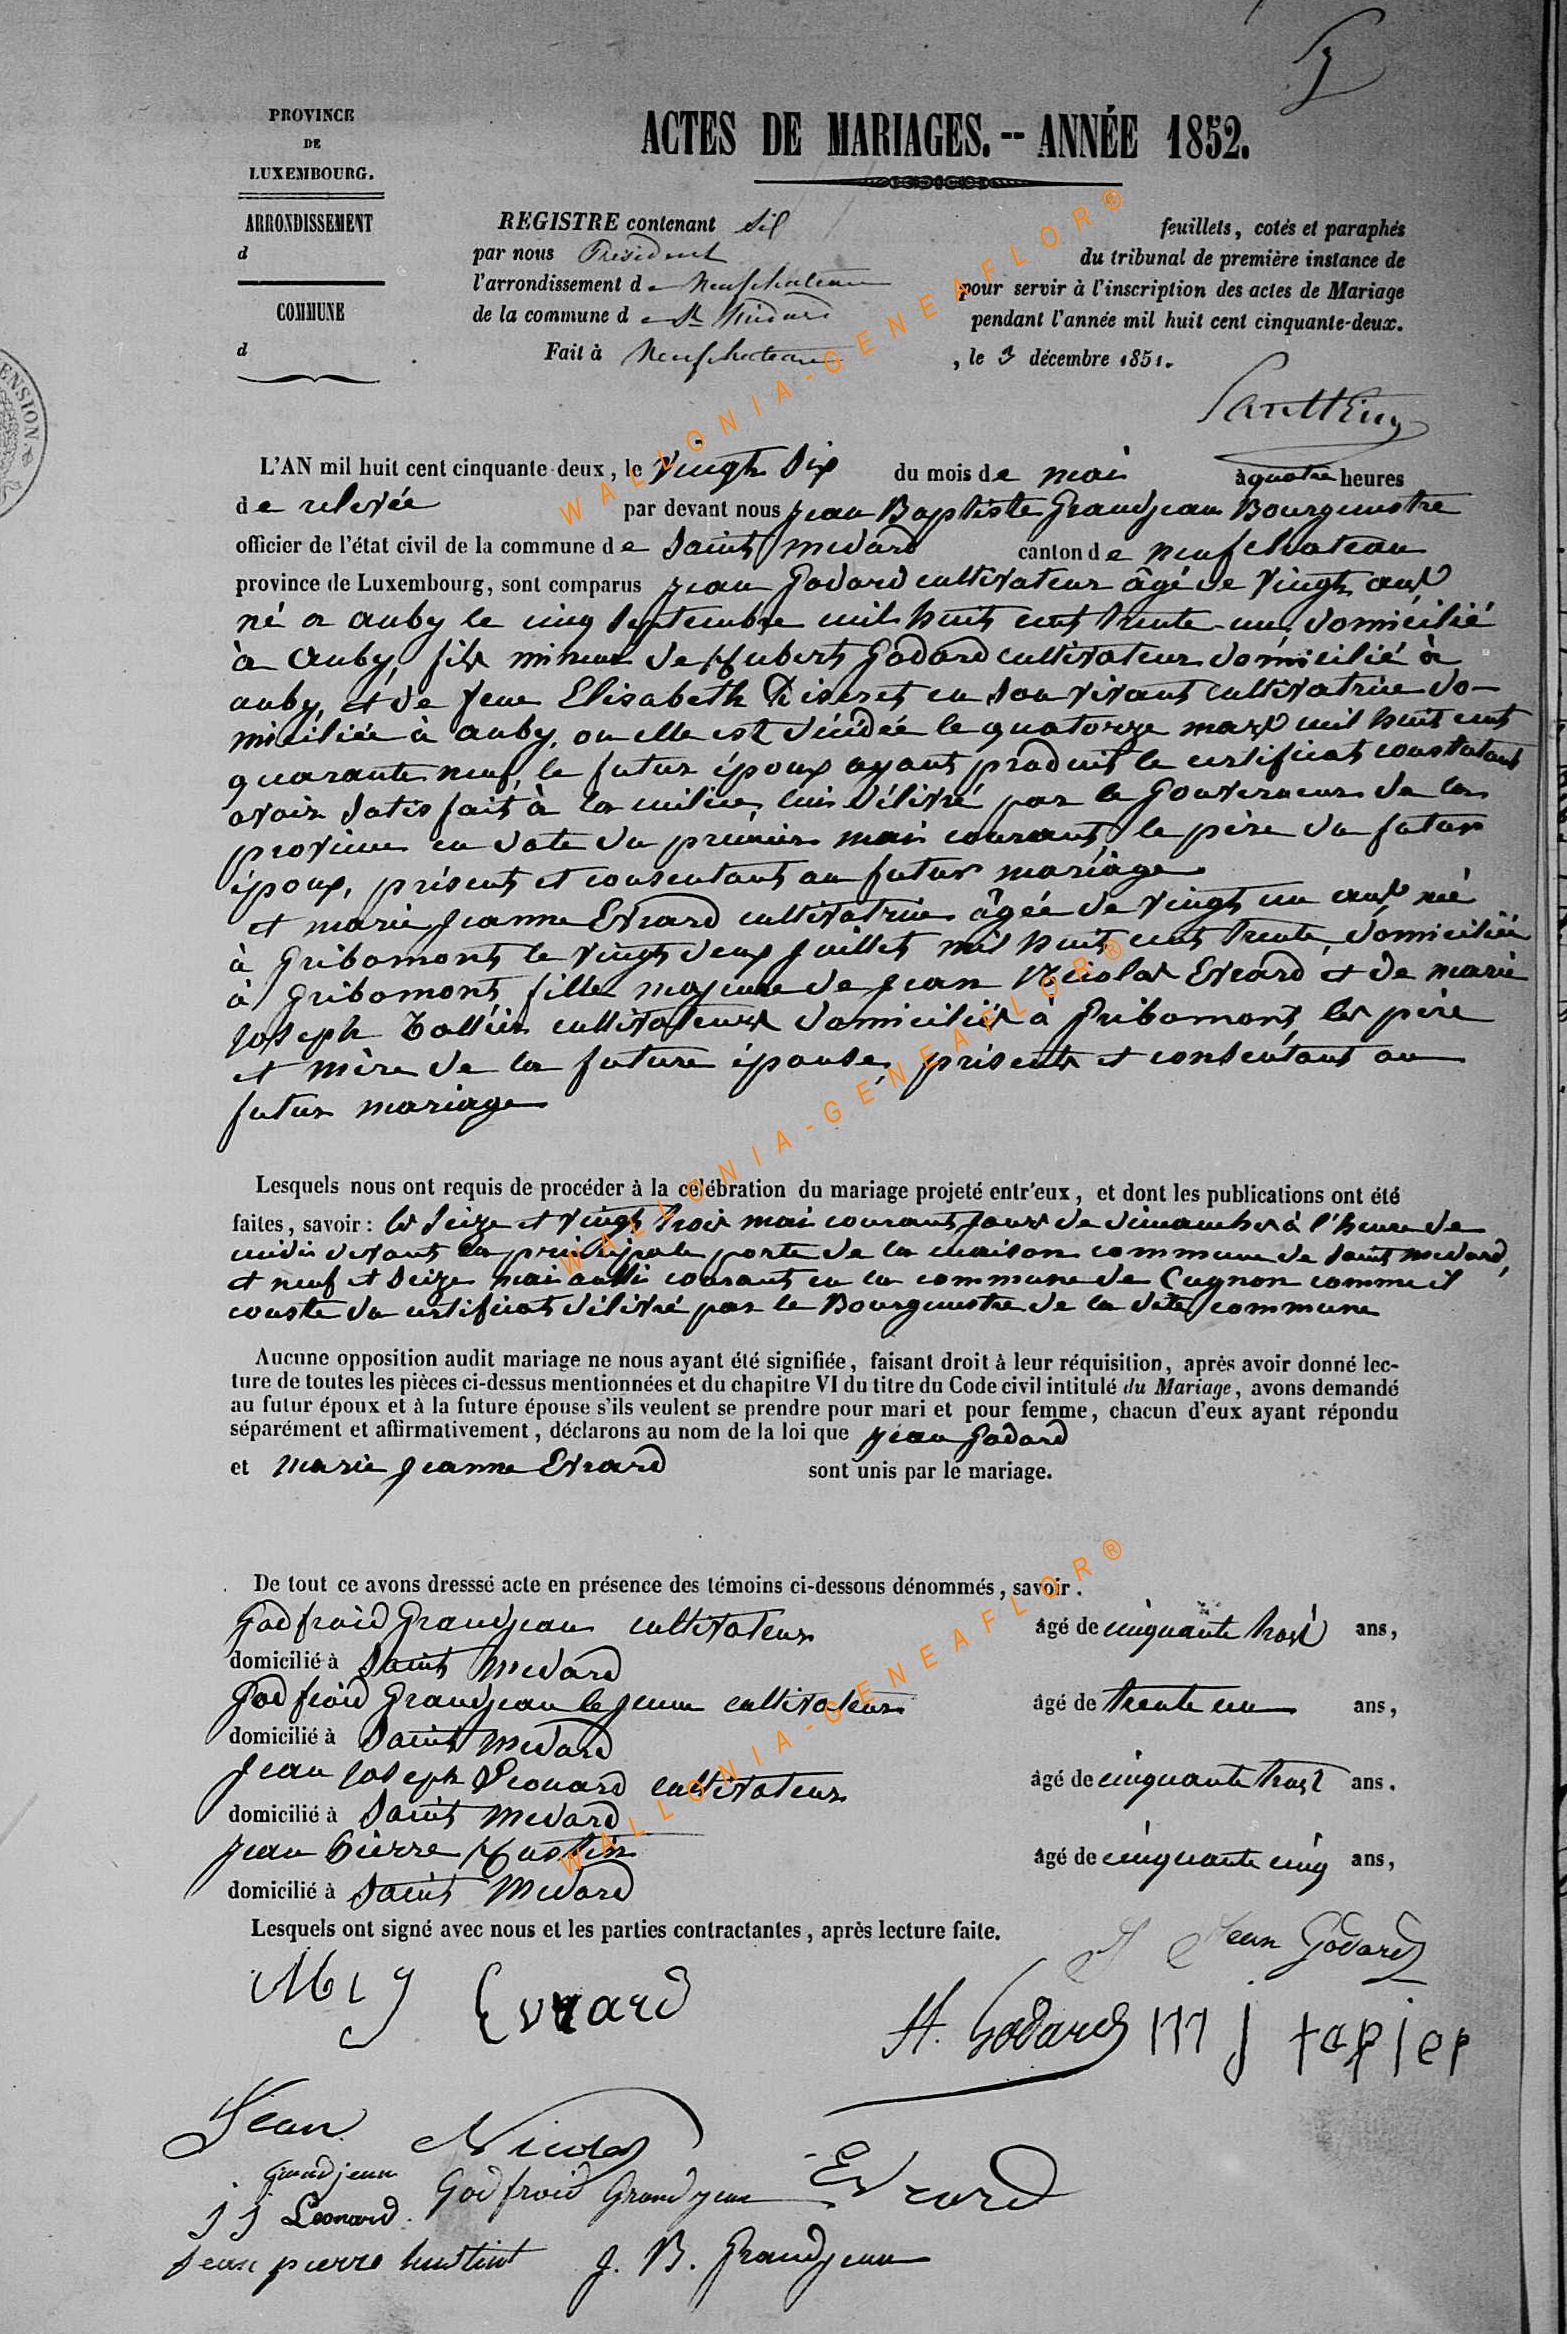 PROVINCE
DE
LUXEMBOURG.
ARRONDISSEMENT
d
COMMUNE
d
ENSION.
ACTES DE MARIAGES.-- ANNÉE 1852.
REGISTRE contenant six feuillets, cotés et paraphés
par nous Président du tribunal de première instance de
l'arrondissement de Neufchateau pour servir à l'inscription des actes de Mariage
de la commune de St Médard pendant l'année mil huit cent cinquante-deux.
Fait à Neufchateau, le 3 décembre 1851.
L'AN mil huit cent cinquante-deux, le vingt six du mois de mai à quatre heures
de relevée par devant nous jean Baptiste Grandjean Bourgmestre
officier de l'état civil de la commune de Saint médard canton de neufchateau
province de Luxembourg, sont comparus jean Godard cultivateur âgé de vingt ans
né a auby le cinq septembre mil huit cent trente un, domicilié
à auby, fils mineur de Hubert Godard cultivateur domicilié à
auby, et de feue Elisabeth Diseret en son vivant cultivatrice do-
miciliée à auby, ou elle est décédée le quatorze mars mil huit cent
quarante neuf, le futur époux ayant produit le certificat constatant
avoir satisfait à la milice, lui délivré par le Gouverneur de la
province en date du premier mai courant, le père du futur
époux, présent et consentant au futur mariage
et marie jeanne Evrard cultivatrice âgée de vingt un ans né
à Gribomont le vingt deux juillet mil huit cent trente, domiciliée
à Gribomont, fille majeure de jean Nicolas Evrard et de marie
joseph cultivateurs domiciliés à Gribomont, les père
et mère de la future épouse, présents et consentant au
futur mariage
Lesquels nous ont requis de procéder à la célébration du mariage projeté entr'eux, et dont les publications ont été
faites, savoir : les seize et vingt trois mai courant jours de dimanches à l'heure de
midi devant la principale porte de la maison commune de saint médard,
et neuf et seize mai aussi courant en la commune de Cugnon comme il
conste du certificat délivré par le Bourgmestre de la dite commune
Aucune opposition audit mariage ne nous ayant été signifiée, faisant droit à leur réquisition, après avoir donné lec-
ture de toutes les pièces ci-dessus mentionnées et du chapitre VI du titre du Code civil intitulé du Mariage, avons demandé
au futur époux et à la future épouse s'ils veulent se prendre pour mari et pour femme, chacun d'eux ayant répondu
séparément et affirmativement, déclarons au nom de la loi que jean Godard
et marie jeanne Evrard sont unis par le mariage.
De tout ce avons dresssé acte en présence des témoins ci-dessous dénommés, savoir.
Godfroid Grandjean cultivateur âgé de cinquante trois ans,
domicilié à Saint médard
Godfroid Grandjean le jeune cultivateur âgé de trente un ans,
domicilié à Saint médard
Jean joseph Léonard cultivateur âgé de cinquante trois ans.
domicilié à Saint médard
jean Pierre Hustin âgé de cinquante cinq ans,
domicilié à Saint médard
Lesquels ont signé avec nous et les parties contractantes, après lecture faite.
Jean Godard
M j Evrard
H. Godard m j tapier
Jean Nicolas Evrard
Grandjean Godfroid Grandjean
J J Leonard
Jean pierre hustint J. B. Grandjean
WALLONIA-GENEAFLOR®
WALLONIA-GENEAFLOR®
WALLONIA-GENEAFLOR®